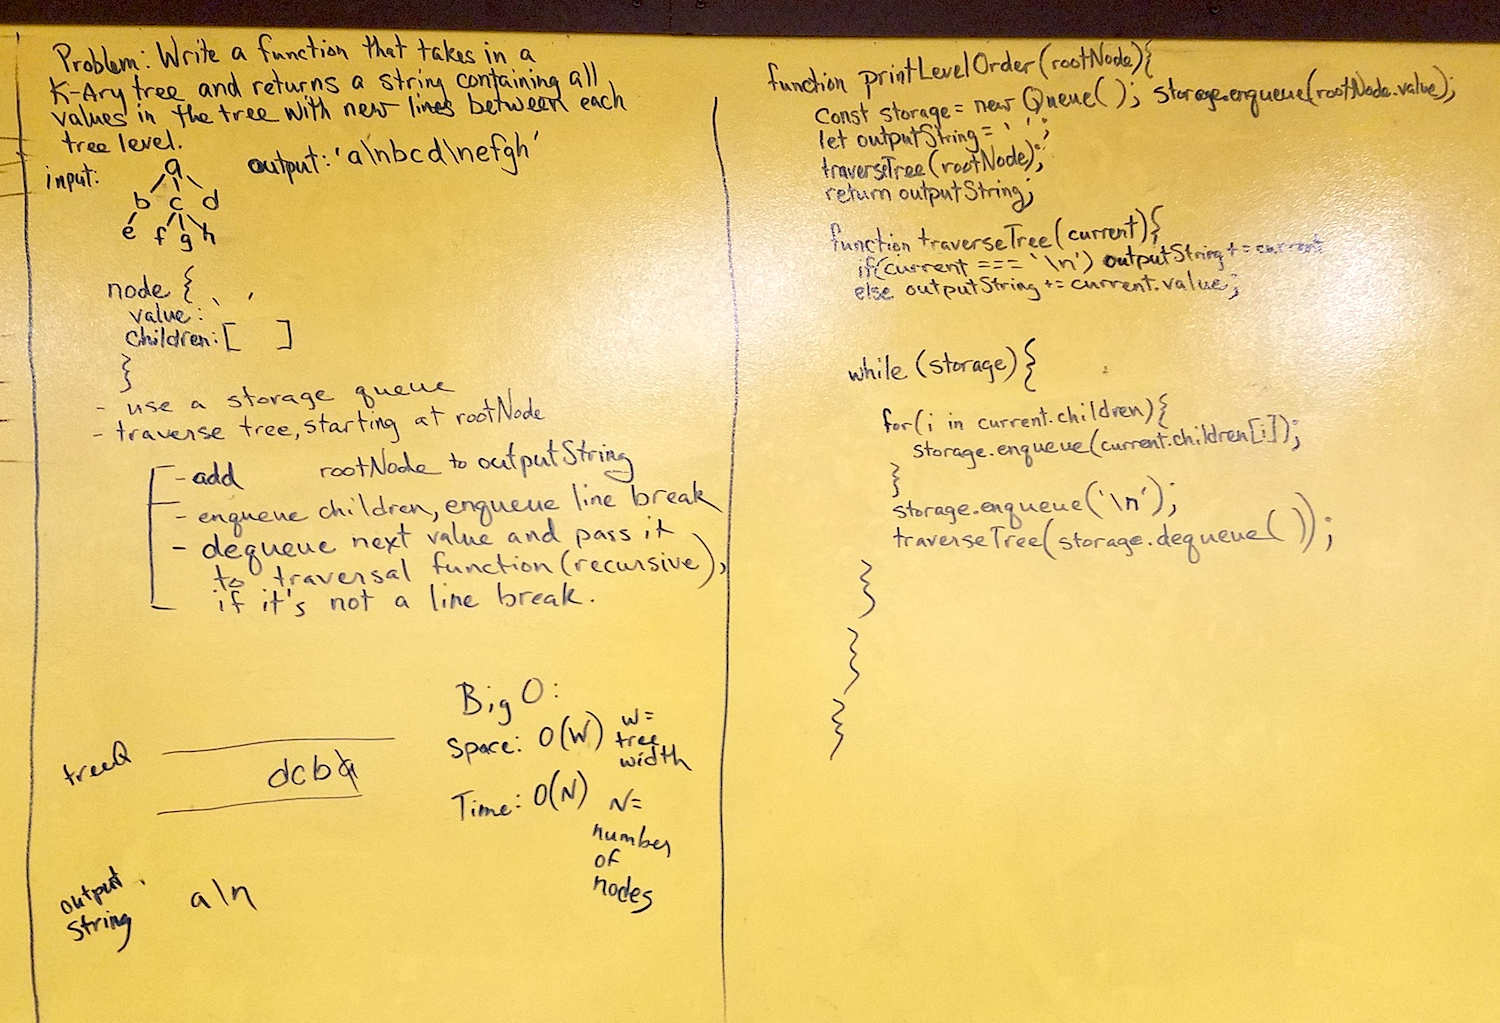 Problem: Write a function that takes in a
K-Ary tree and returns a string containing all
values in the tree with new lines between each
tree level.
input:
output: 'a\nbcd\nefgh'
a
b c d
e f g h
node {
value: ' '
children: [ ]
}
- use a storage queue
- traverse tree, starting at rootNode
- add rootNode to outputString
- enqueue children, enqueue line break
- dequeue next value and pass it
to traversal function (recursive),
if it's not a line break.
treeQ
dcba
output
string
a\n
Big O:
Space: O(W) w=
tree
width
Time: O(N) N=
number
of
nodes
function printLevelOrder(rootNode){
Const storage = new Queue( ); storage.enqueue(rootNode.value);
let outputString = ' ';
traverseTree(rootNode);
return outputString;
function traverseTree(current){
if(current === '\n') outputString += current
else outputString += current.value;
while (storage) {
for(i in current.children){
storage.enqueue(current.children[i]);
}
storage.enqueue('\n');
traverseTree(storage.dequeue( ));
}
}
}